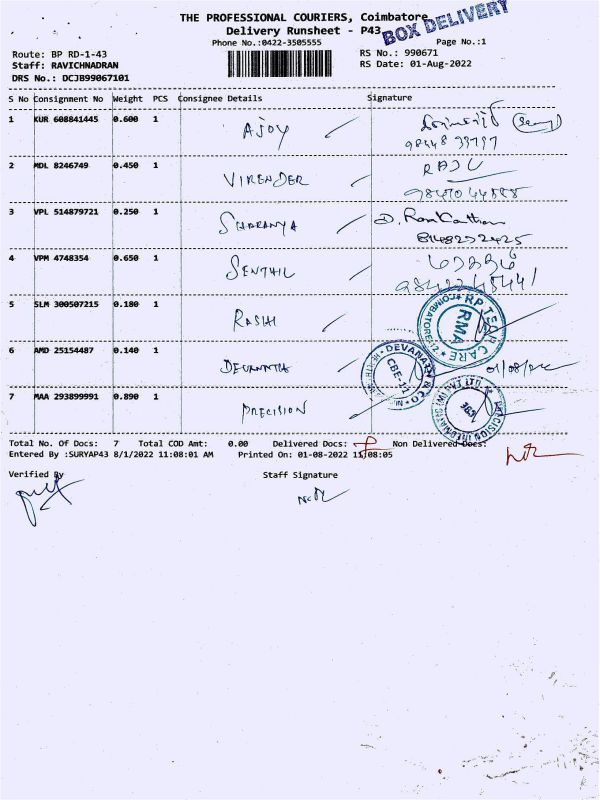 THE PROFESSIONAL COURIERS, Coimbatore
Delivery Runsheet - P43
BOX DELIVERY
Phone No.:0422-3505555
Page No.:1
Route: BP RD-1-43
RS No.: 990671
Staff: RAVICHNADRAN
RS Date: 01-Aug-2022
DRS No.: DCJB99067101
S No Consignment No Weight PCS Consignee Details Signature
1 KUR 608841445 0.600 1 AJOY
2 MDL 8246749 0.450 1 VIRENDER RAJU
3 VPL 514879721 0.250 1 SHARANYA D. Ram Kanthan
8148272425
4 VPM 4748354 0.650 1 SENTHIL
5 SLM 300507215 0.180 1 RASHI
RP TECH CARE
RMA
COIMBATORE-12.
6 AMD 25154487 0.140 1 DEVANATH
DEVANATH & CO
CBE-11
7 MAA 293899991 0.890 1 PRECISION
Total No. Of Docs: 7 Total COD Amt: 0.00 Delivered Docs: Non Delivered Docs:
Entered By :SURYAP43 8/1/2022 11:08:01 AM Printed On: 01-08-2022 11:08:05
Verified By Staff Signature